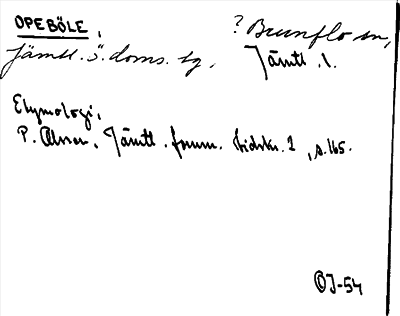 OPEBÖLE, ? Brunflo sn,
Jämtl. s. doms. tg. Jämtl. l.
Etymologi,
P. Olsson. Jämtl. fornm. tidskr. 1, s. 165.
OJ-54